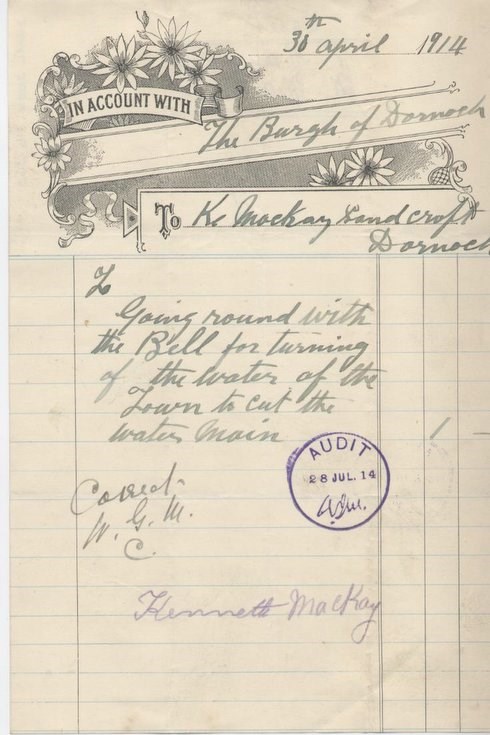 30th April 1914
IN ACCOUNT WITH
The Burgh of Dornoch
To Ke Mackay Sandcroft
Dornoch
To
Going round with
the Bell for turning
of the water of the
Town to cut the
water main 1 -
AUDIT
28 JUL. 14
W. G. M.
C.
Kenneth MacKay